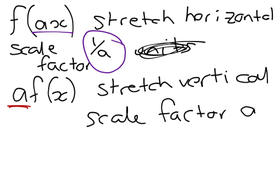 f(ax) stretch horizontal
scale factor 1/a
af(x) stretch vertical
scale factor a